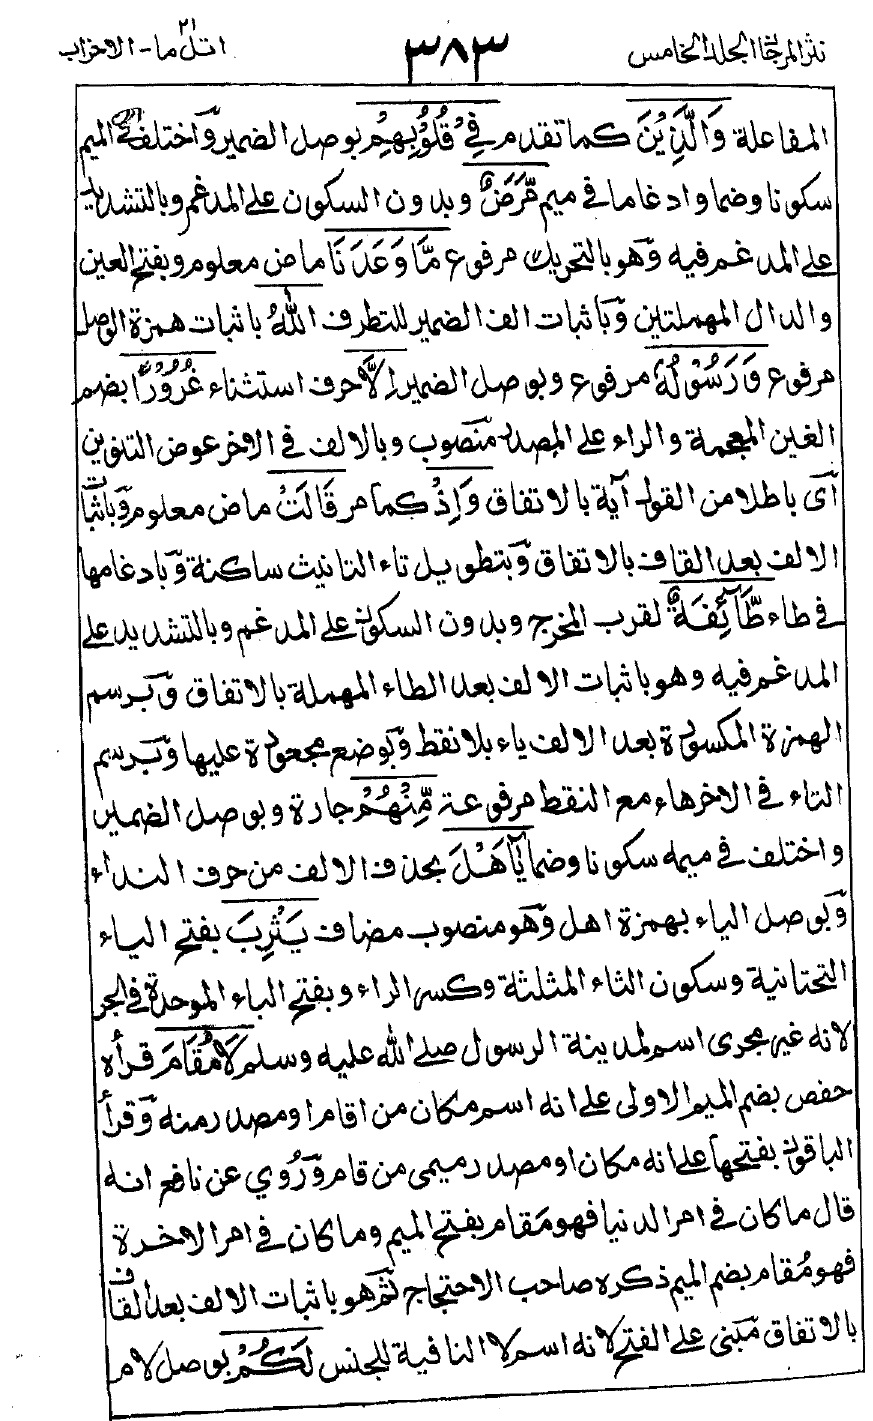 نثر المرجان الجلد الخامس ٣٨٣ اتل ما - الاحزاب ٢١
المفاعلة وَالَّذِيْنَ كما تقدم فِيْ قُلُوْبِهِمْ بوصل الضمير واختلف في الميم
سكونا وضما وادغاما في ميم مَّرَضٌ وبدون السكون على المدغم وبالتشديد
على المدغم فيه وهو بالتحريك مرفوع مَّا وَعَدَنَا ماض معلوم وبفتح العين
والدال المهملتين وباثبات الف الضمير للتطرف اللّٰهُ باثبات همزة الوصل
مرفوع وَرَسُوْلُهٗ مرفوع وبوصل الضمير اِلَّا حرف استثناء غُرُوْرًا بضم
الغين المعجمة والراء على المصدر منصوب وبالالف في الاخر عوض التنوين
اى باطلا من القول آية بالاتفاق وَاِذْ كما مر قَالَتْ ماض معلوم وباثبات
الالف بعد القاف بالاتفاق وبتطويل تاء التانيث ساكنة وبادغامها
في طاء طَّآئِفَةٌ لقرب المخرج وبدون السكون على المدغم وبالتشديد على
المدغم فيه وهو باثبات الالف بعد الطاء المهملة بالاتفاق وبرسم
الهمزة المكسورة بعد الالف ياء بلا نقط وبوضع مجعودة عليها وبرسم
التاء في الاخر هاء مع النقط مرفوعة مِّنْهُمْ جارة وبوصل الضمير
واختلف في ميمه سكونا وضما يٰٓاَهْلَ بحذف الالف من حرف النداء
وبوصل الياء بهمزة اهل وهو منصوب مضاف يَثْرِبَ بفتح الياء
التحتانية وسكون الثاء المثلثة وكسر الراء وبفتح الباء الموحدة في الجر
لانه غير مجرى اسم لمدينة الرسول صلى الله عليه وسلم لَا مُقَامَ قرأه
حفص بضم الميم الاولى على انه اسم مكان من اقام او مصدر منه وقرأ
الباقون بفتحها على انه مكان او مصدر ميمى من قام وروي عن نافع انه
قال ما كان في امر الدنيا فهو مَقام بفتح الميم وما كان في امر الاخرة
فهو مُقام بضم الميم ذكره صاحب الاحتجاج ثم هو باثبات الالف بعد القاف
بالاتفاق مبنى على الفتح لانه اسم لا النافية للجنس لَكُمْ بوصل لام